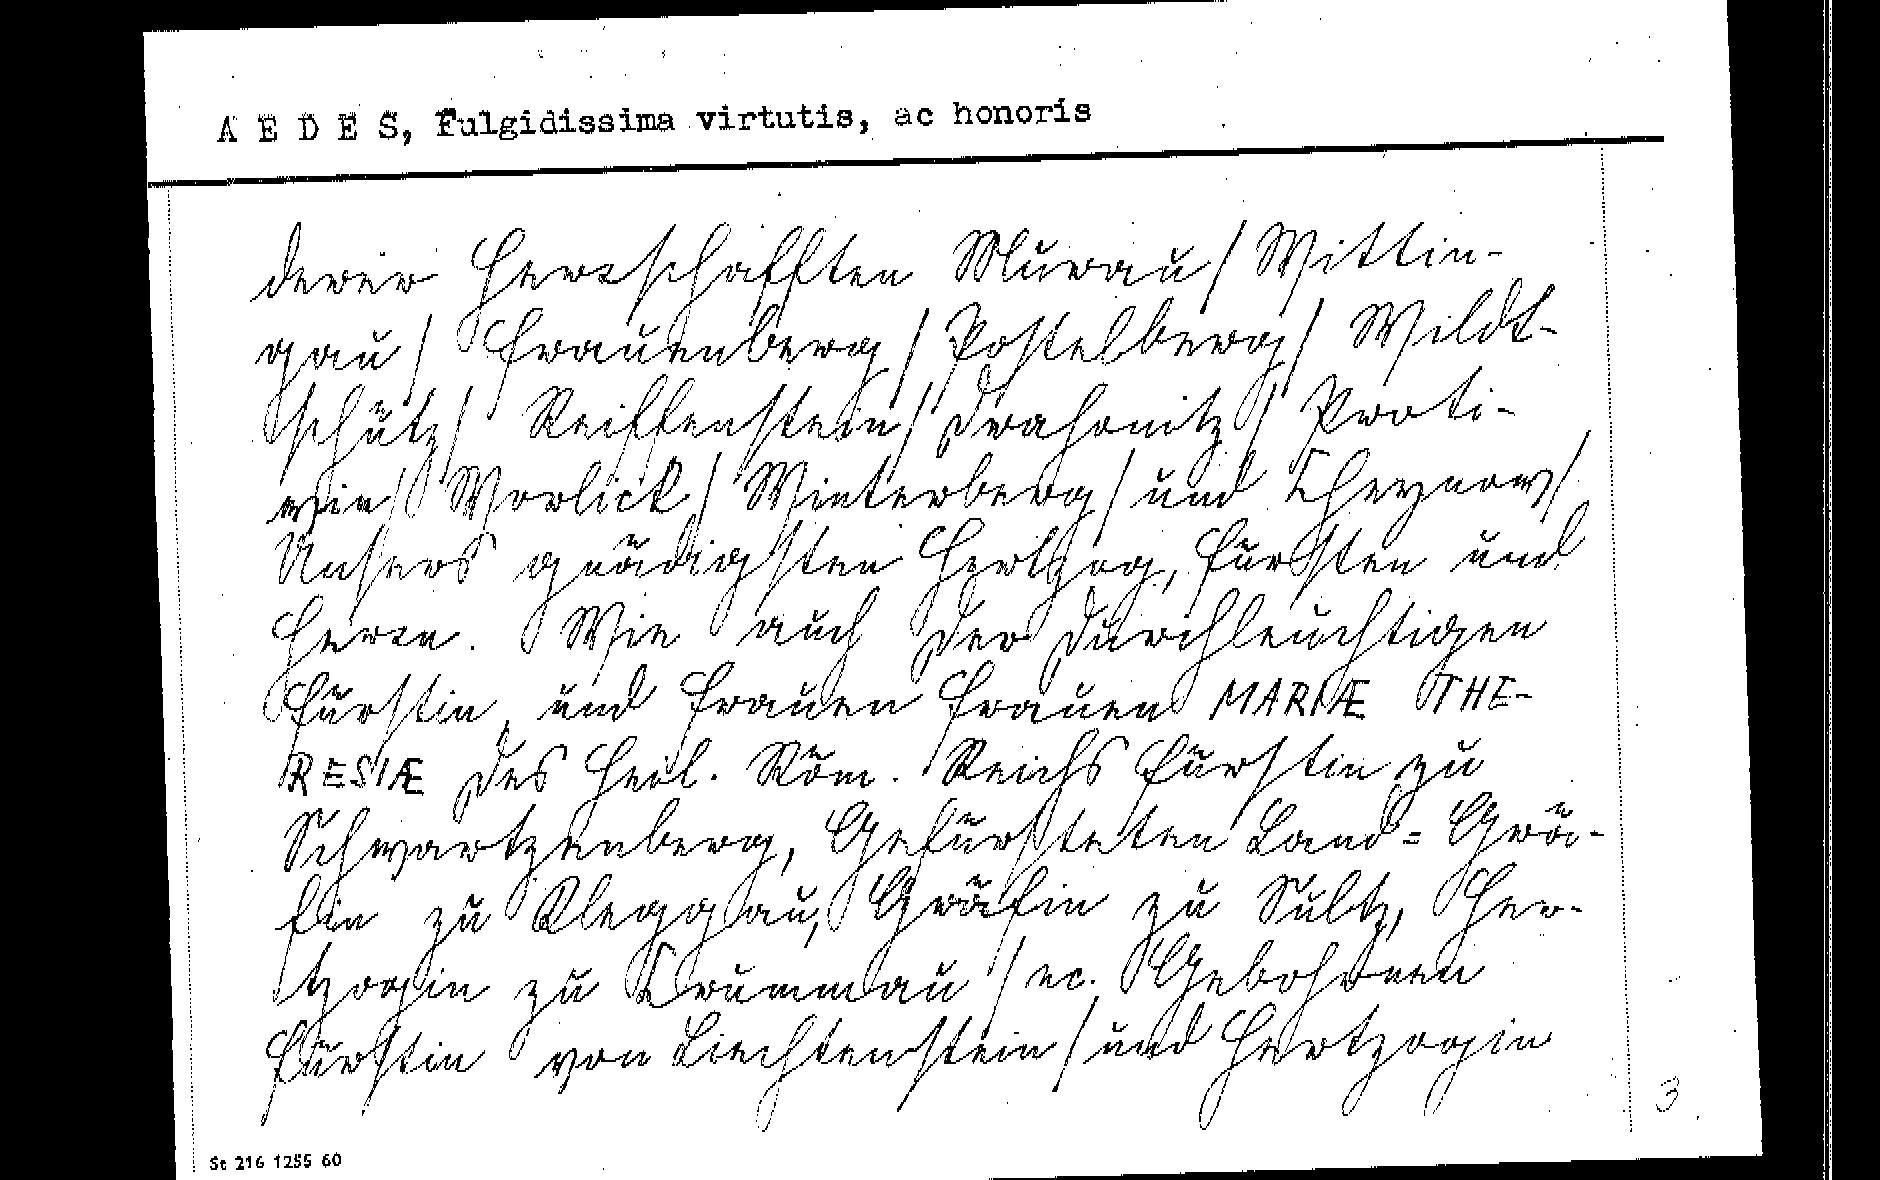 A E D E S, Fulgidissima virtutis, ac honoris
derer Herrschafften Murau/ Wittin-
gau/ Frauenberg/ Postelberg/ Wildt-
schütz/ Reiffenstein/ Drahonitz/ Proti-
win/ Worlick/ Winterberg/ und Cheynow/
Unsers gnädigsten Hertzog, Fürsten und
Herrn. Wie auch der Durchleuchtigen
Fürstin, und Frauen Frauen MARIÆ THE-
RESIÆ des Heil. Röm. Reichs Fürstin zu
Schwartzenberg, Gefürsteten Land= Grä-
fin zu Cleggau, Gräfin zu Sultz, Her-
tzogin zu Crummau / ec. Gebohrnen
Fürstin von Liechtenstein/ und Hertzogin
3
St 216 1255 60